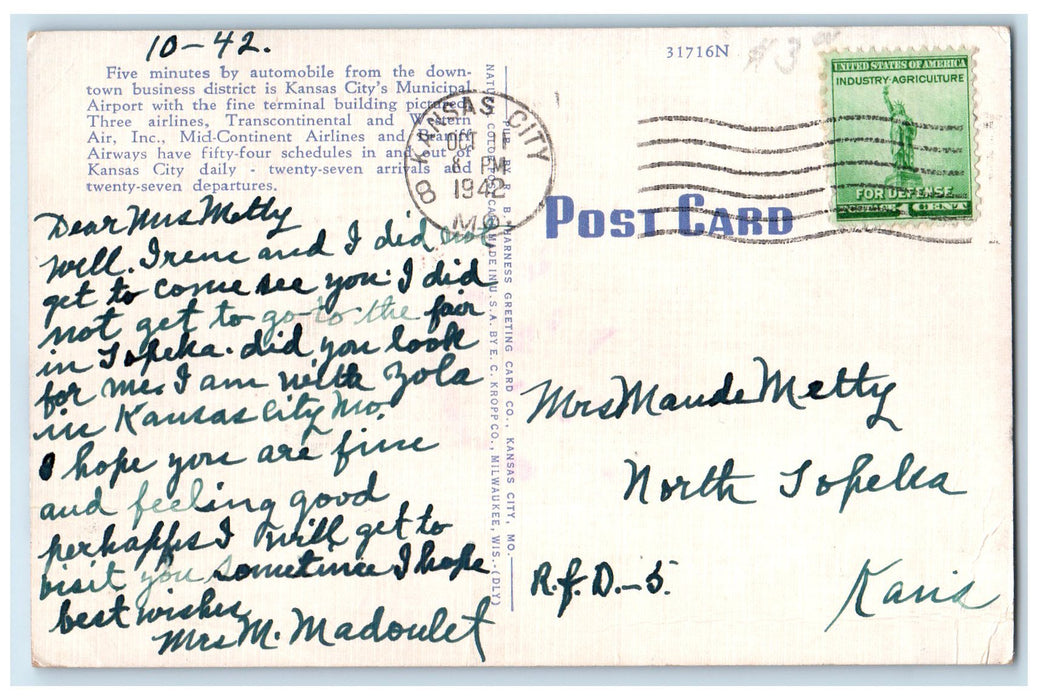 10-42.
31716N
$3
Five minutes by automobile from the down-
town business district is Kansas City's Municipal
Airport with the fine terminal building pictured.
Three airlines, Transcontinental and Western
Air, Inc., Mid-Continent Airlines and Braniff
Airways have fifty-four schedules in and out of
Kansas City daily - twenty-seven arrivals and
twenty-seven departures.
KANSAS CITY
OCT
8 PM
1942
MO.
8
UNITED STATES OF AMERICA
INDUSTRY·AGRICULTURE
FOR DEFENSE
1 CENT
POST CARD
Dear Mrs Metty
well. Irene and I did not
get to come see you. I did
not get to go to the fair
in Topeka. did you look
for me. I am with Zola
in Kansas City Mo.
I hope you are fine
and feeling good
perhapps I will get to
visit you sometime I hope
best wishes
Mrs M. Madoulet
B. HARNESS GREETING CARD CO., KANSAS CITY, MO.
MADE IN U.S.A. BY E. C. KROPP CO., MILWAUKEE, WIS.-(DLY)
Mrs Maude Metty
North Topeka
R.f.D.-5.
Kans